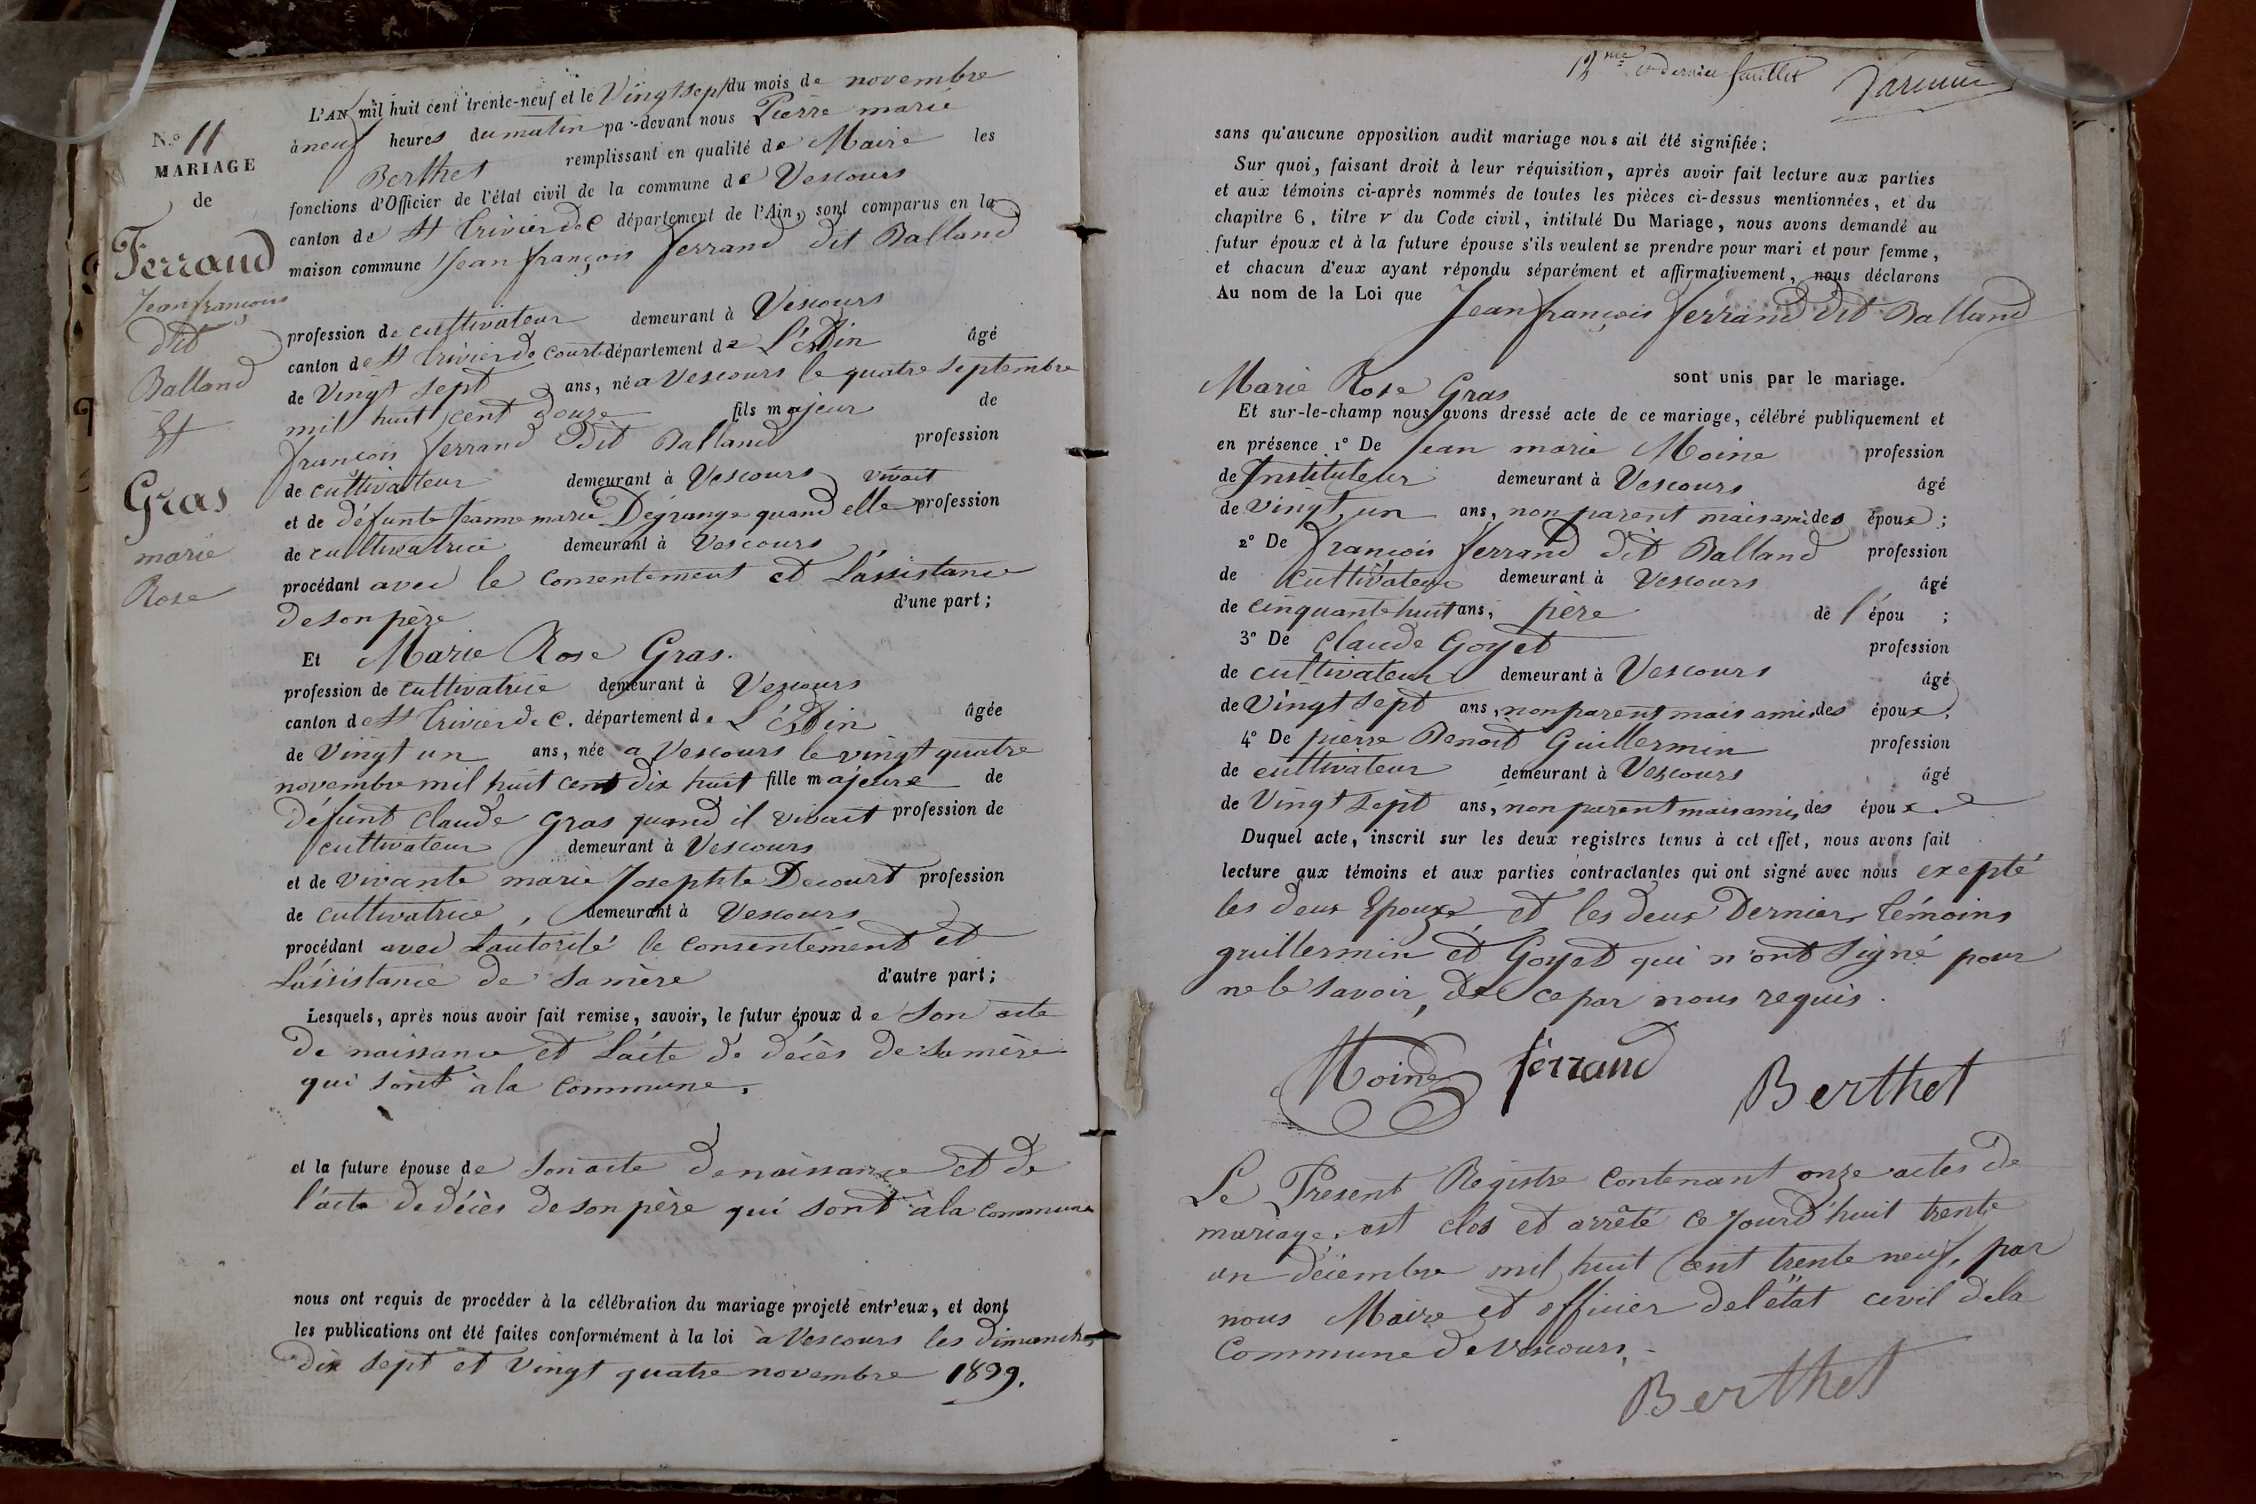 N.º 11
MARIAGE
de
Ferrand
Jean françois
dit
Balland
Et
Gras
marie
Rose
L'AN mil huit cent trente-neuf et le Vingt sept du mois de novembre
à neuf heures du matin par-devant nous Pierre marie
Berthet remplissant en qualité de Maire les
fonctions d'Officier de l'état civil de la commune de Vescours
canton de St Trivier de C département de l'Ain, sont comparus en la
maison commune Jean françois ferrand dit Balland
profession de cultivateur demeurant à Vescours
canton de St Trivier de Courtes département de L'Ain âgé
de Vingt sept ans, né a Vescours le quatre septembre
mil huit cent douze fils majeur de
françois ferrand dit Balland profession
de cultivateur demeurant à Vescours vivait
et de défunte Jeanne marie Dégrange quand elle profession
de cultivatrice demeurant à Vescours
procédant avec le consentement et l'assistance
de son père d'une part;
Et Marie Rose Gras.
profession de cultivatrice demeurant à Vescours
canton de St Trivier de C. département de L'Ain âgée
de Vingt un ans, née a Vescours le vingt quatre
novembre mil huit cent dix huit fille majeure de
défunt Claude Gras quand il vivait profession de
cultivateur demeurant à Vescours
et de vivante marie Josephte Decourt profession
de cultivatrice, demeurant à Vescours
procédant avec l'autorité le consentement et
L'assistance de sa mère d'autre part;
Lesquels, après nous avoir fait remise, savoir, le futur époux de son acte
de naissance et L'acte de décès de sa mère
qui sont à la commune.
et la future épouse de son acte de naissance et de
l'acte de décès de son père qui sont à la commune
nous ont requis de procéder à la célébration du mariage projeté entr'eux, et dont
les publications ont été faites conformément à la loi à Vescours les dimanches
dix sept et vingt quatre novembre 1839.
12me et dernier feuillet
sans qu'aucune opposition audit mariage nous ait été signifiée;
Sur quoi, faisant droit à leur réquisition, après avoir fait lecture aux parties
et aux témoins ci-après nommés de toutes les pièces ci-dessus mentionnées, et du
chapitre 6, titre v du Code civil, intitulé Du Mariage, nous avons demandé au
futur époux et à la future épouse s'ils veulent se prendre pour mari et pour femme,
et chacun d'eux ayant répondu séparément et affirmativement, nous déclarons
Au nom de la Loi que Jean françois ferrand dit Balland
Marie Rose Gras sont unis par le mariage.
Et sur-le-champ nous avons dressé acte de ce mariage, célébré publiquement et
en présence 1º De Jean marie Moine profession
de Instituteur demeurant à Vescours âgé
de vingt un ans, non parent mais ami des époux;
2º De françois ferrand dit Balland profession
de cultivateur demeurant à Vescours âgé
de cinquante huit ans, père de l'épou ;
3º De Claude Goyet profession
de cultivateur demeurant à Vescours âgé
de Vingt sept ans, non parent mais ami des époux.
4º De pierre Benoit Guillermin profession
de cultivateur demeurant à Vescours âgé
de Vingt sept ans, non parent mais ami des époux.
Duquel acte, inscrit sur les deux registres tenus à cet effet, nous avons fait
lecture aux témoins et aux parties contractantes qui ont signé avec nous excepté
les deux Epouxe et les deux Dernier témoins
guillermin et Goyet qui n'ont signé pour
ne le savoir, de ce par nous requis.
Moine ferrand Berthet
Le Present Registre contenant onze actes de
mariage, est clos et arrêté ce jourd'huit trente
un décembre mil huit cent trente neuf, par
nous Maire et officier de l'état civil de la
Commune de Vescours.
Berthet